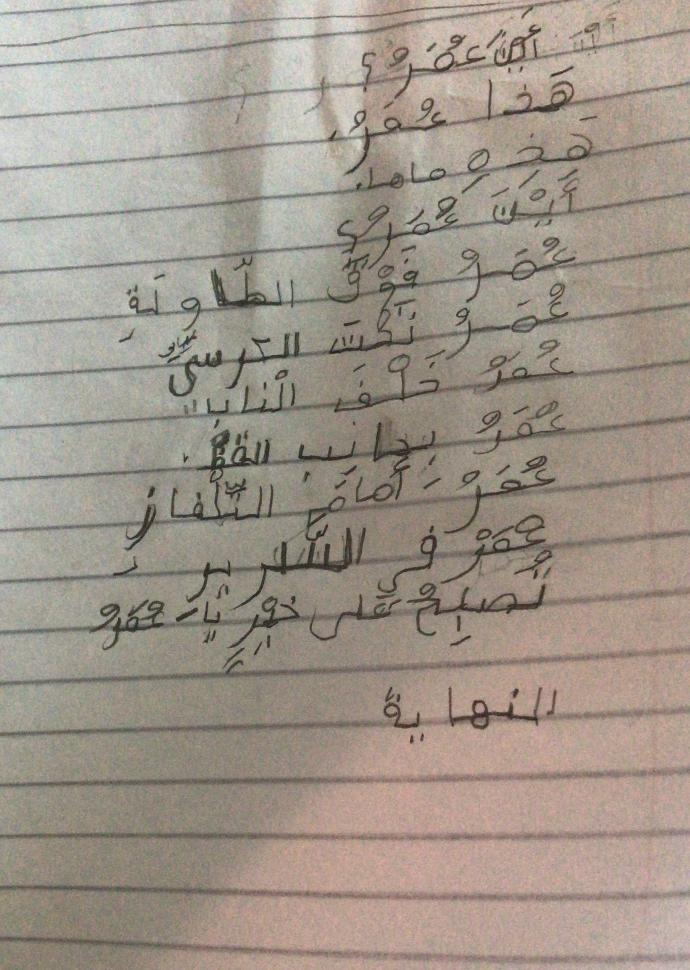 أَيْنَ عُمَرُ؟
هَذَا عُمَرُ.
هَذِه ماما.
أَيْنَ عُمَرُ؟
عُمَرُ فَوْقَ الطَّاوِلَةِ
عُمَرُ تَحْتَ الكُرسيِّ
عُمَرُ خَلْفَ الْبَابِ
عُمَرُ بِجانِبِ القِطِّ.
عُمَرُ أَمَامَ التِّلْفازِ
عُمَرُ في السَّريرِ
تُصبِحُ عَلى خَيْرٍ يَا عُمَرُ
النهاية